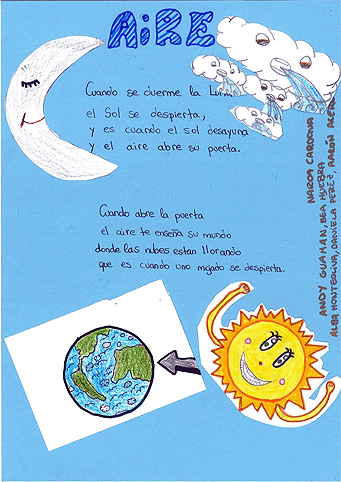 AiRE
Cuando se duerme la Luna,
el Sol se despierta,
y es cuando el sol desayuna
y el aire abre su puerta.
Cuando abre la puerta
el aire te enseña su mundo
donde las nubes estan llorando
que es cuando uno mojado se despierta.
NAROA CARDONA
ANDY GUAMAN, BEA HUEBRA
ALBA MONTEOLIVA, DANIELA PEREZ, AARON